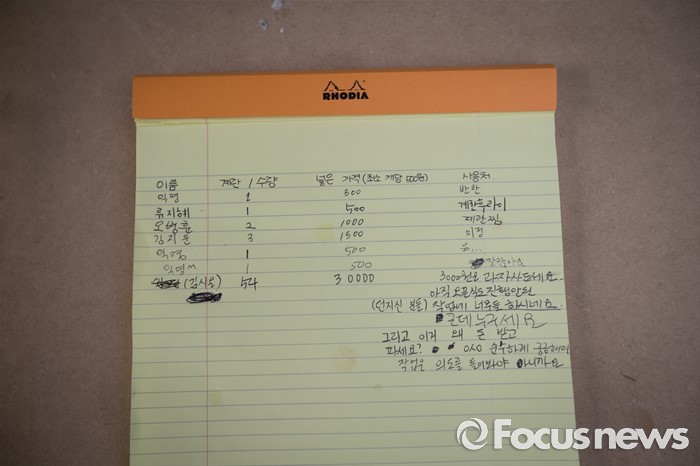 RHODIA
이름 계란 / 수량 넣은 가격 (최소 개당 500원) 사용처
익명 1 500 반찬
류지혜 1 500 계란후라이
오병훈 2 1000 계란찜
김지윤 3 1500 미정
익명 1 500 음...
익명^^ 1 500
(김시웅) 54 30000 3000원은 과자사드세요
아직 오픈식도 진행안된
(던지신 분들) 작업에 너무들 하시네요
근데 누구세요
그리고 이거 왜 돈 받고
파세요? 순수하게 궁금해서
작업은 의도를 들어봐야 아니까요
Focusnews